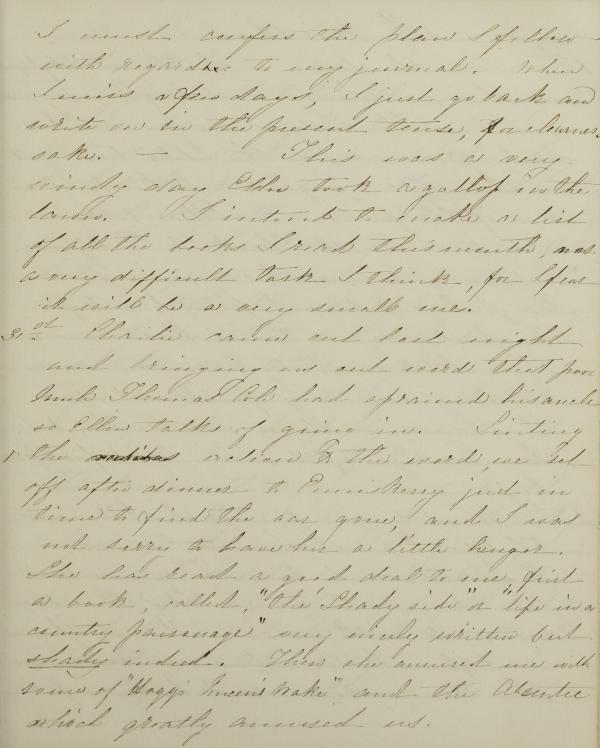 I must confess the plan I follow
with regards to my journal. When
I miss a few days, I just go back and
write on in the present tense, for clearness
sake. — This was a very
windy day Ellen took a gallop in the
lawn. I intend to make a list
of all the books I read this month, not
a very difficult task I think, for I fear
it will be a very small one.
31st Charlie came out last night
and bringing us out word that poor
Uncle Thomas had sprained his ancle
so Ellen talks of going in. Suiting
the action to the word, we set
off after dinner to Enniskerry just in
time to find the car gone, and I was
not sorry to have her a little longer.
She has read a good deal to me, first
a book, called, "the Shady side" or "life in a
country parsonage" very nicely written but
shady indeed. Then she amused me with
some of "Hogg's Queen's Wake" and the Absentee
which greatly amused us.